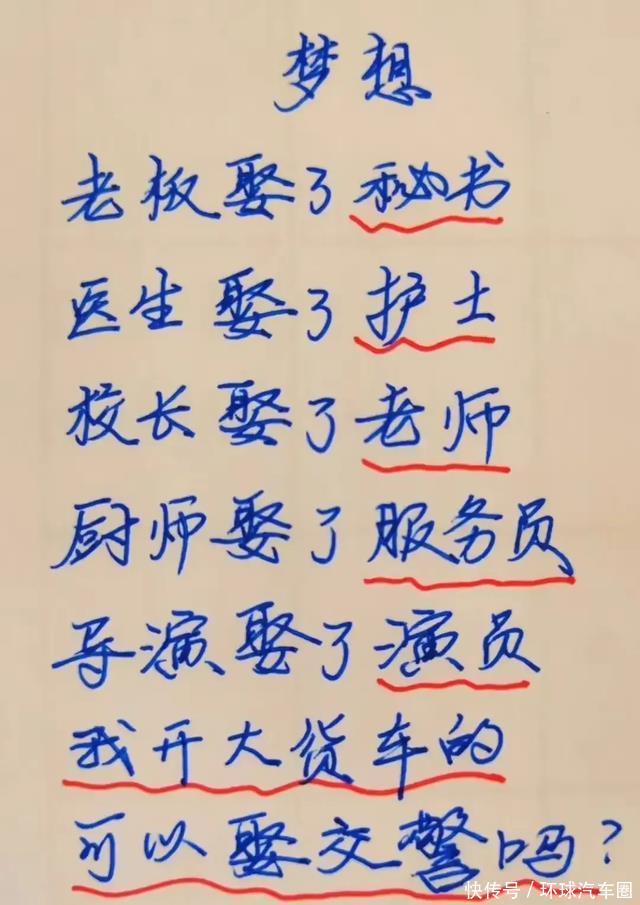 梦想
老板娶了秘书
医生娶了护士
校长娶了老师
厨师娶了服务员
导演娶了演员
我开大货车的
可以娶交警吗?
快传号/环球汽车圈